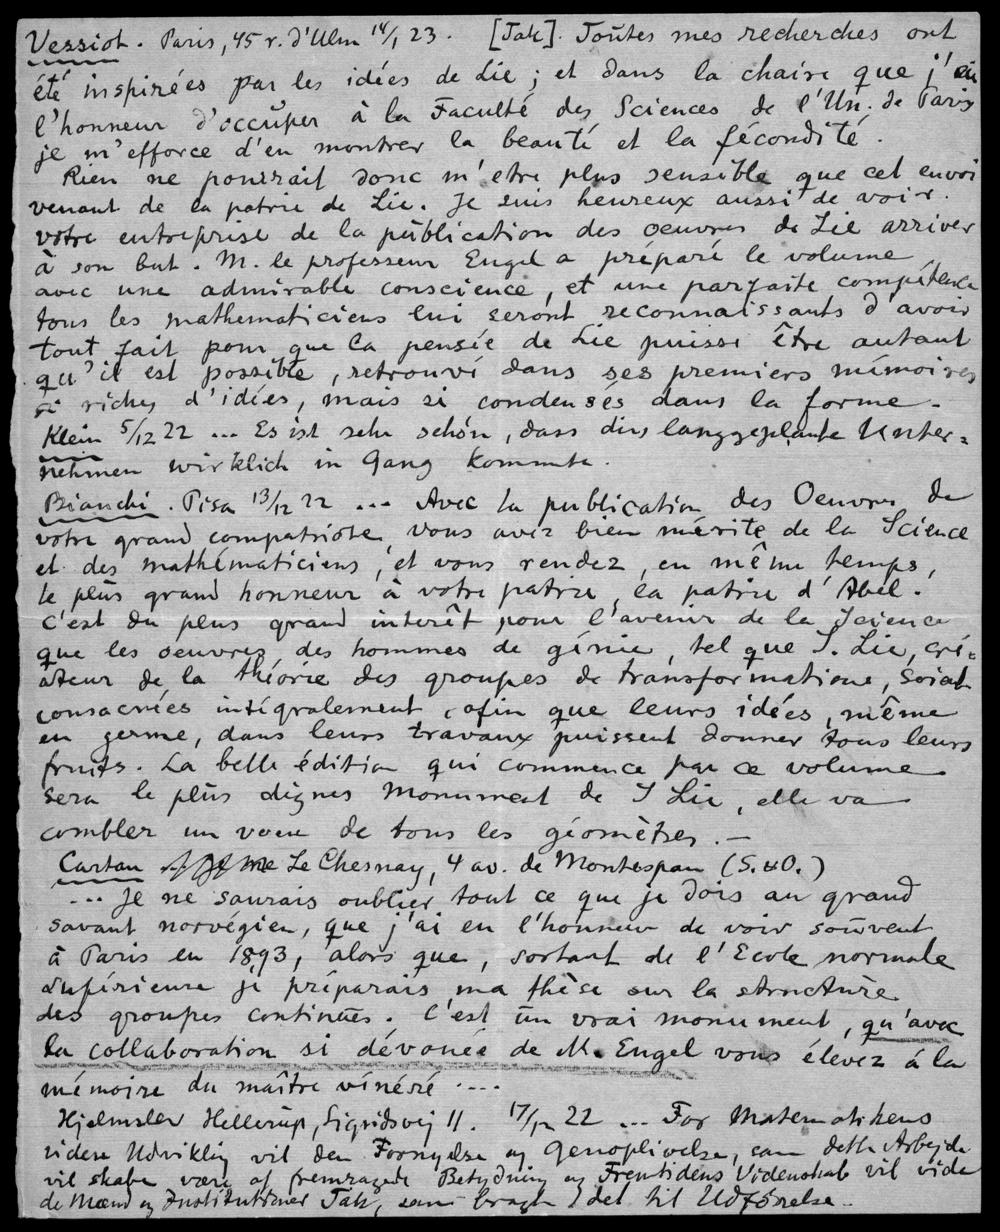 Vessiot. Paris, 45 r. d'Ulm 14/1 23. [Tak]. Toutes mes recherches ont
été inspirées par les idées de Lie ; et dans la chaire que j'ai
l'honneur d'occuper à la Faculté des Sciences de l'Un. de Paris
je m'efforce d'en montrer la beauté et la fécondité.
Rien ne pourrait donc m'etre plus sensible que cet envoi
venant de la patrie de Lie. Je suis heureux aussi de voir
votre entreprise de la publication des oeuvres de Lie arriver
à son but. M. le professeur Engel a préparé le volume
avec une admirable conscience, et une parfaite compétence
tous les mathematiciens lui seront reconnaissants d'avoir
tout fait pour que la pensée de Lie puisse être autant
qu'il est possible, retrouvé dans ses premiers mémoires
si riches d'idées, mais si condensés dans la forme.
Klein 5/12 22 ... Es ist sehr schön, dass dies langgeplante Unter=
nehmen wirklich in Gang kommte.
Bianchi. Pisa 13/12 22 ... Avec la publication des Oeuvres de
votre grand compatriote, vous avez bien mérité de la Science
et des mathématiciens, et vous rendez, en même temps,
le plus grand honneur à votre patrie, la patrie d'Abel.
C'est du plus grand interêt pour l'avenir de la Science
que les oeuvres des hommes de génie, tel que S. Lie, cré=
ateur de la théorie des groupes de transformations, soient
consacrées intégralement, afin que leurs idées, même
en germe, dans leurs travaux puissent donner tous leurs
fruits. La belle édition qui commence par ce volume
sera le plus dignes monument de S Lie, elle va
combler un voeu de tous les géomètres. —
Cartan Le Chesnay, 4 av. de Montespan (S. & O.)
... Je ne saurais oublier tout ce que je dois au grand
savant norvégien, que j'ai eu l'honneur de voir souvent
à Paris en 1893, alors que, sortant de l'Ecole normale
supérieure je préparais ma thèse sur la structure
des groupes continus. C'est un vrai monument, qu'avec
la collaboration si dévouée de M. Engel vous élevez à la
mémoire du maître vénéré ....
Hjelmslev Hellerup, Sigridsvej 11. 17/12 22 ... For Matematikens
videre Udvikling vil den Fornyelse og Genoplivelse, som dette Arbejde
vil skabe være af fremragende Betydning og Fremtidens Videnskab vil vide
de Mænd og Institutioner Tak, som bragte det til Udførelse.